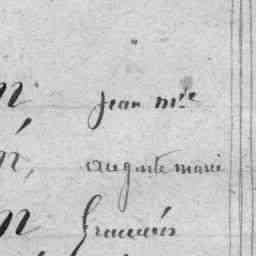 n Jean Mie
n, auguste marie
n François